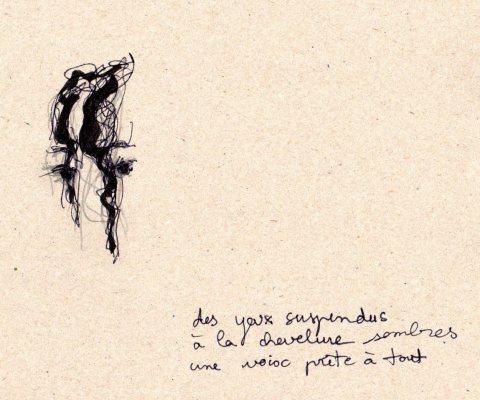 des yeux suspendus
à la chevelure sombres
une voix prête à tout